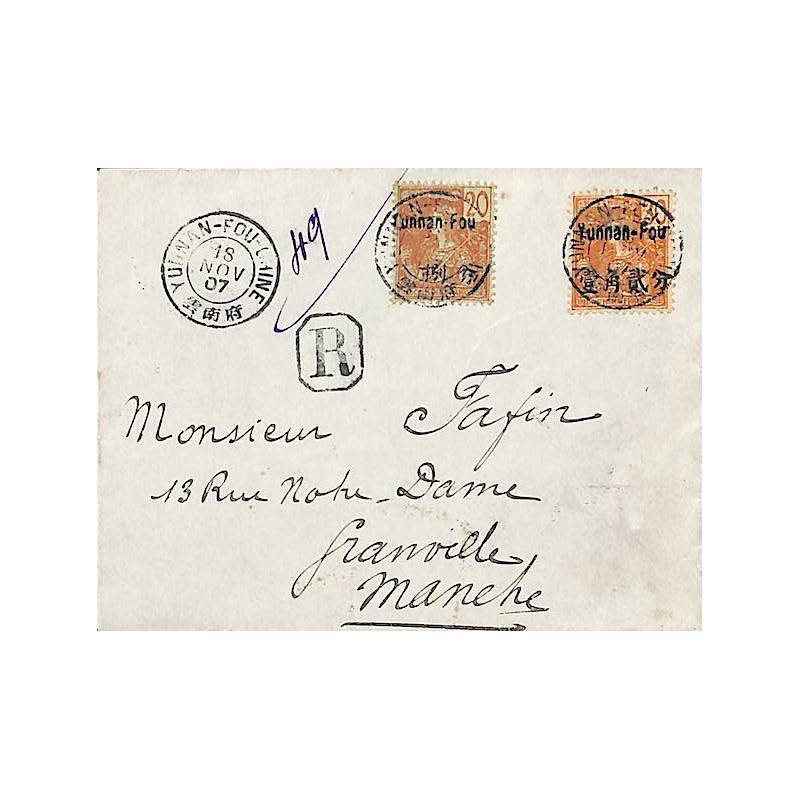 YUNNAN-FOU-CHINE
18
NOV
07
雲南府
49
20
Yunnan-Fou
捌分
雲南府
Yunnan-Fou
壹角貳分
R
Monsieur Fafin
13 Rue Notre-Dame
Granville
Manche